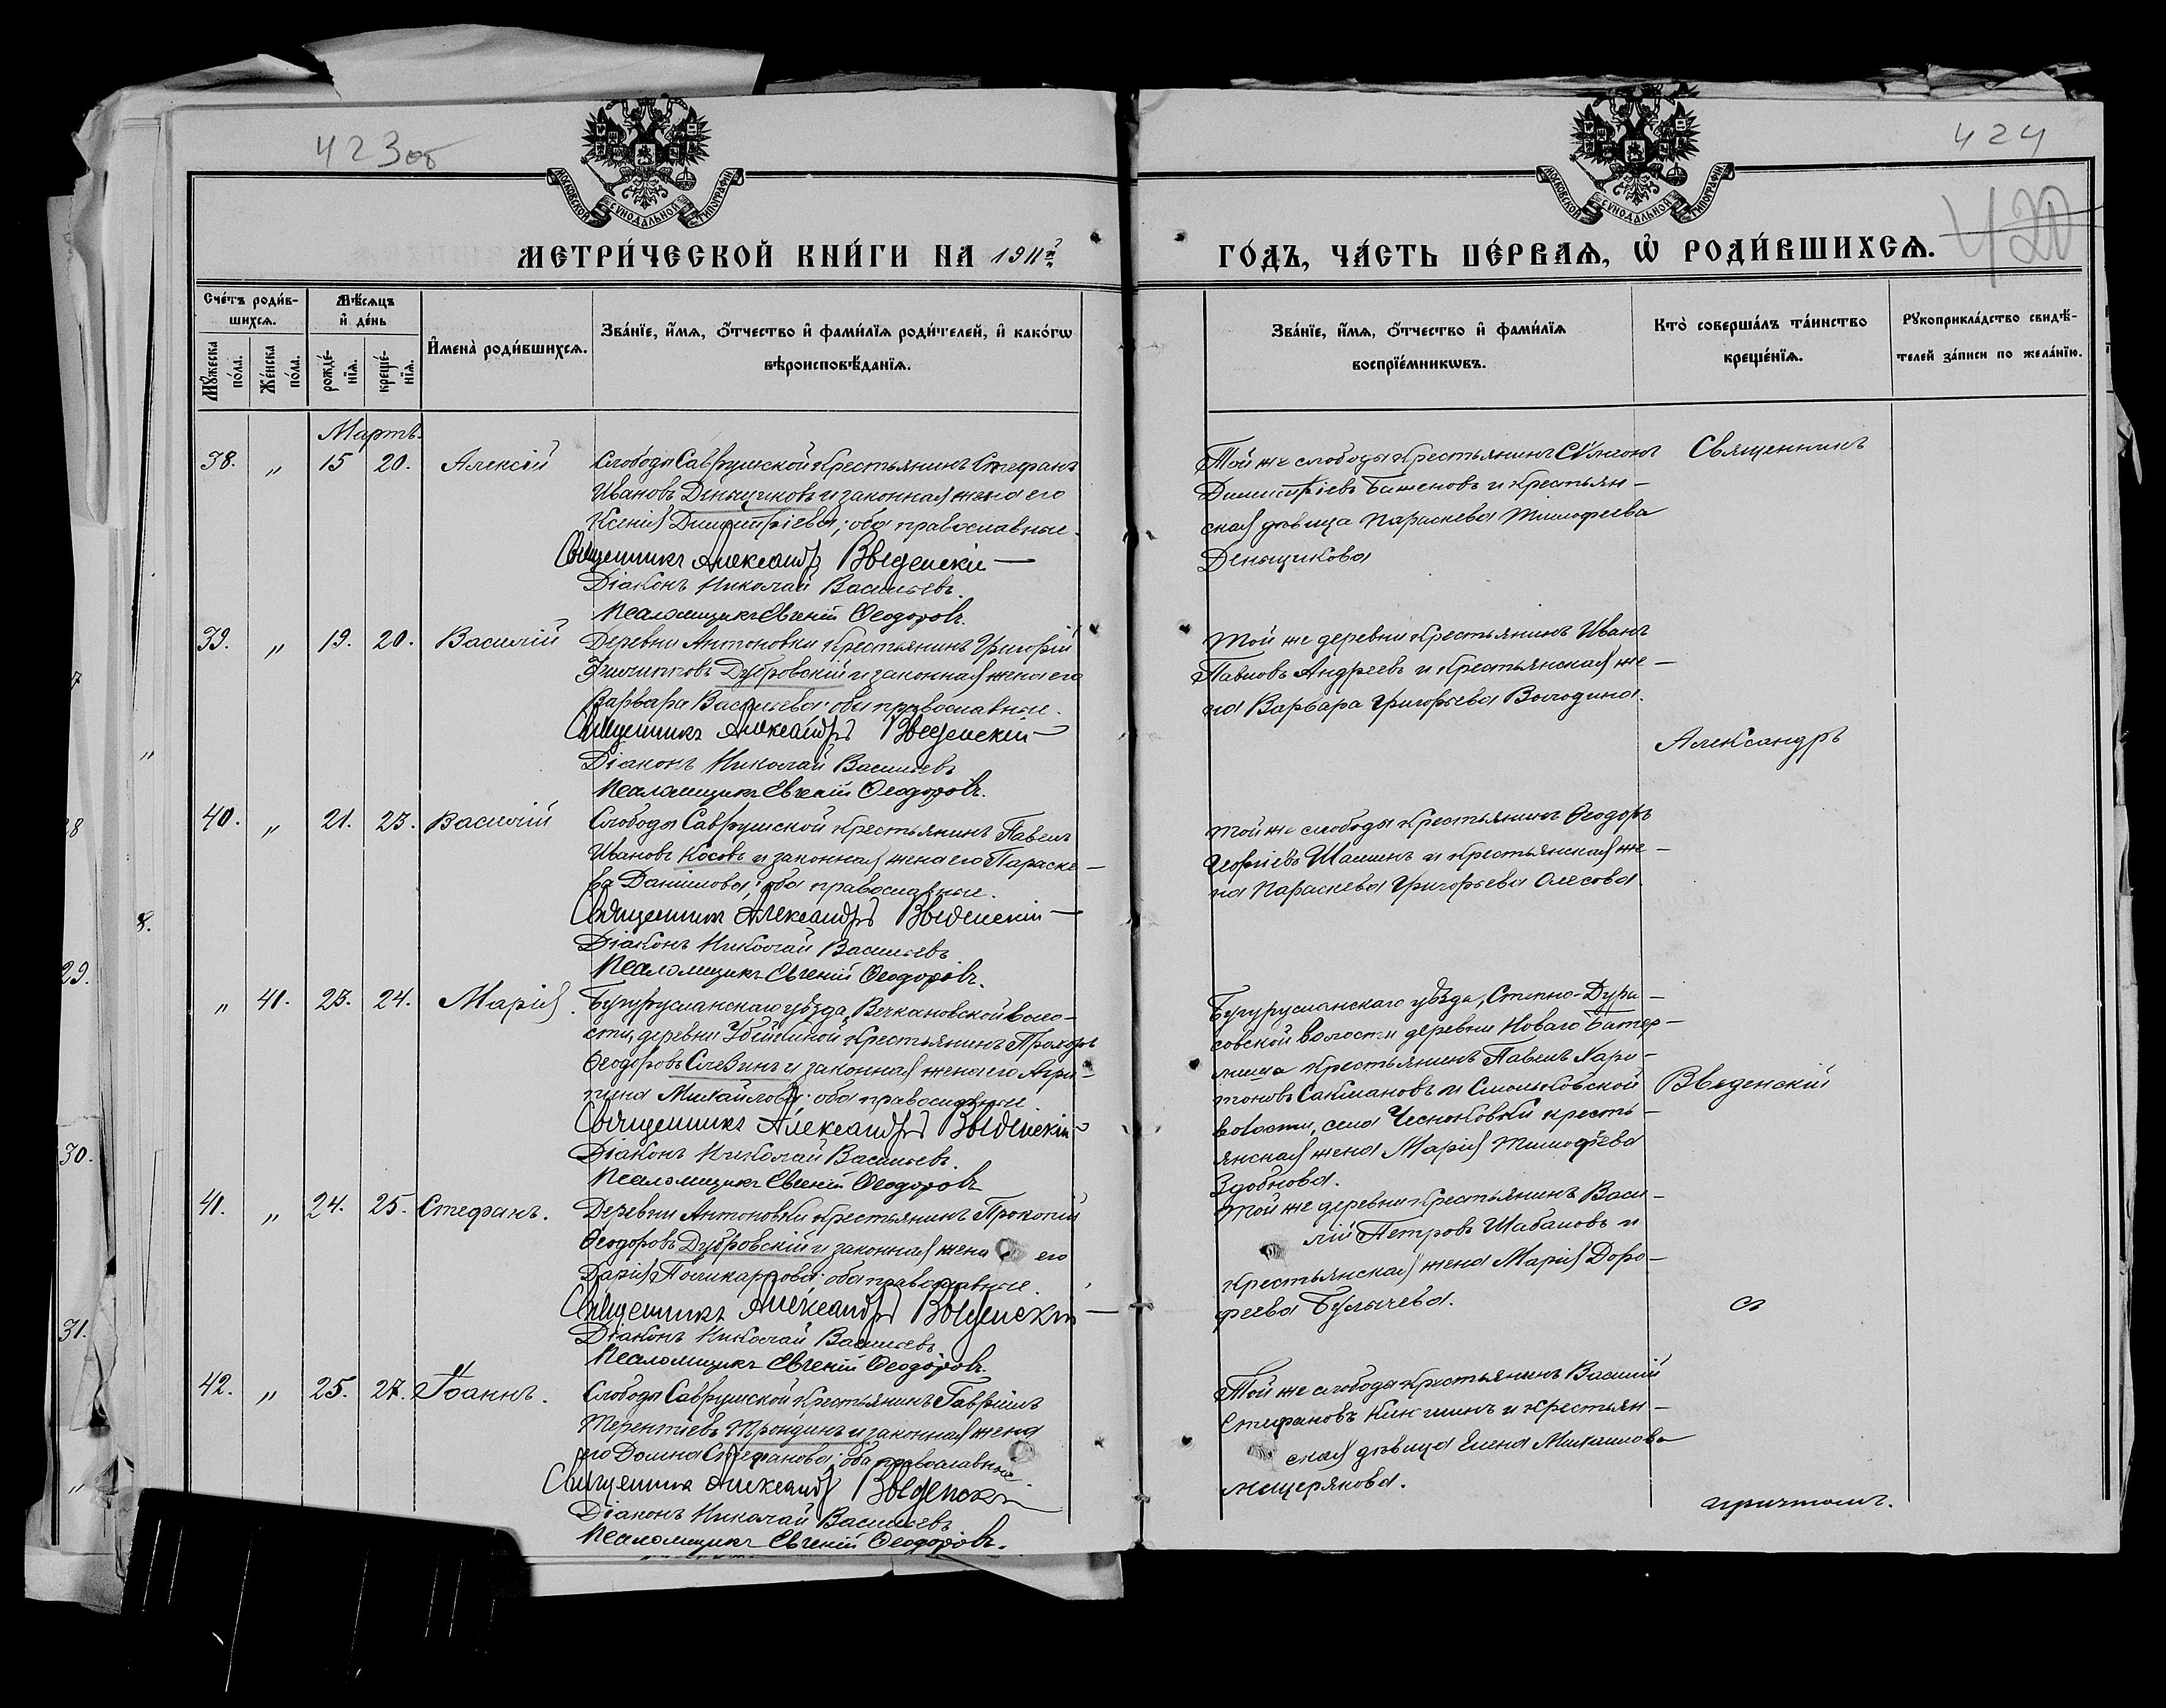 423об
МОСКОВСКОЙ СѴНОДАЛЬНОЙ ТИПОГРАФІИ
МЕТРИ́ЧЕСКОЙ КНИ́ГИ НА 1911й
Сче́тъ роди́в-
шихсѧ.
Мѣ́сѧцъ
и҆ де́нь
Мꙋ́жеска по́ла.
Же́нска по́ла.
рожде́-
нїѧ.
креще́-
нїѧ.
И҆мена̀ роди́вшихсѧ.
Зва́нїе, и҆́мѧ, ѻ҆́тчество и҆ фами́лїѧ роди́телей, и҆ како́гѡ
вѣроисповѣ́данїѧ.
Мартъ.
38. " 15 20. Алексій
Слободы Саврушской крестьянинъ Стефанъ
Ивановъ Деньщиковъ и законная жена его
Ксенія Димитріева; оба православные.
Священникъ Александръ Введенскій
Діаконъ Николай Васильевъ.
Псаломщикъ Евгеній Ѳеодоровъ.
39. " 19. 20. Василій
Деревни Антоновки крестьянинъ Григорій
Филипповъ Дубровскій и законная жена его
Варвара Васильева; оба православные.
Священникъ Александръ Введенскій
Діаконъ Николай Васильевъ
Псаломщикъ Евгеній Ѳеодоровъ.
40. " 21. 23. Василій
Слободы Саврушской крестьянинъ Павелъ
Ивановъ Косовъ и законная жена его Параске-
ва Данилова; оба православные.
Священникъ Александръ Введенскій
Діаконъ Николай Васильевъ
Псаломщикъ Евгеній Ѳеодоровъ.
" 41. 23. 24. Марія.
Бугурусланскаго уѣзда, Вечкановской воло-
сти, деревни крестьянинъ Прохоръ
Ѳеодоровъ Слезинъ и законная жена его Агри-
пина Михайлова; оба православные.
Священникъ Александръ Введенскій
Діаконъ Николай Васильевъ.
Псаломщикъ Евгеній Ѳеодоровъ
41. " 24. 25. Стефанъ.
Деревни Антоновки крестьянинъ Прокопій
Ѳеодоровъ Дубровскій и законная жена его
Дарія Поликарпова; оба православные.
Священникъ Александръ Введенскій
Діаконъ Николай Васильевъ
Псаломщикъ Евгеній Ѳеодоровъ.
42. " 25. 27. Іоаннъ.
Слободы Саврушской крестьянинъ Гавріилъ
Терентіевъ и законная жена
его Домна Стефанова; оба православные.
Священникъ Александръ Введенскій
Діаконъ Николай Васильевъ
Псаломщикъ Евгеній Ѳеодоровъ.
424
420
МОСКОВСКОЙ СѴНОДАЛЬНОЙ ТИПОГРАФІИ
ГО́ДЪ, ЧА́СТЬ ПЕ́РВАѦ, Ѡ҆ РОДИ́ВШИХСѦ.
Зва́нїе, и҆́мѧ, ѻ҆́тчество и҆ фами́лїѧ
воспрїе́мникѡвъ.
Кто̀ соверша́лъ та́инство
креще́нїѧ.
Рꙋкоприкла́дство свидѣ́-
телей за́писи по жела́нїю.
Той же слободы крестьянинъ Сѵмеонъ
Димитріевъ Баженовъ и крестьян-
ская дѣвица Параскева Тимофеева
Деньщикова
Той же деревни крестьянинъ Иванъ
Павловъ Андреевъ и крестьянская же-
на Варвара Григорьева Володина.
Той же слободы крестьянинъ Ѳеодоръ
Георгіевъ Шашинъ и крестьянская же-
на Параскева Григорьева Олесова.
Бугурусланскаго уѣзда, Степно-Дура-
совской волости деревни Новаго Батер-
лиша крестьянинъ Павелъ Хари-
тоновъ Сакмановъ и Смольковской
волости, села Чесноковки кресть-
янская жена Марія Тимофѣева
Здобнова.
Той же деревни крестьянинъ Васи-
лій Петровъ Шабановъ и
крестьянская жена Марія Доро-
феева Булычева.
Той же слободы крестьянинъ Василій
Стефановъ и крестьян-
ская дѣвица Елена Михаилова
Мещерякова.
Священникъ
Александръ
Введенскій
съ
причтомъ.